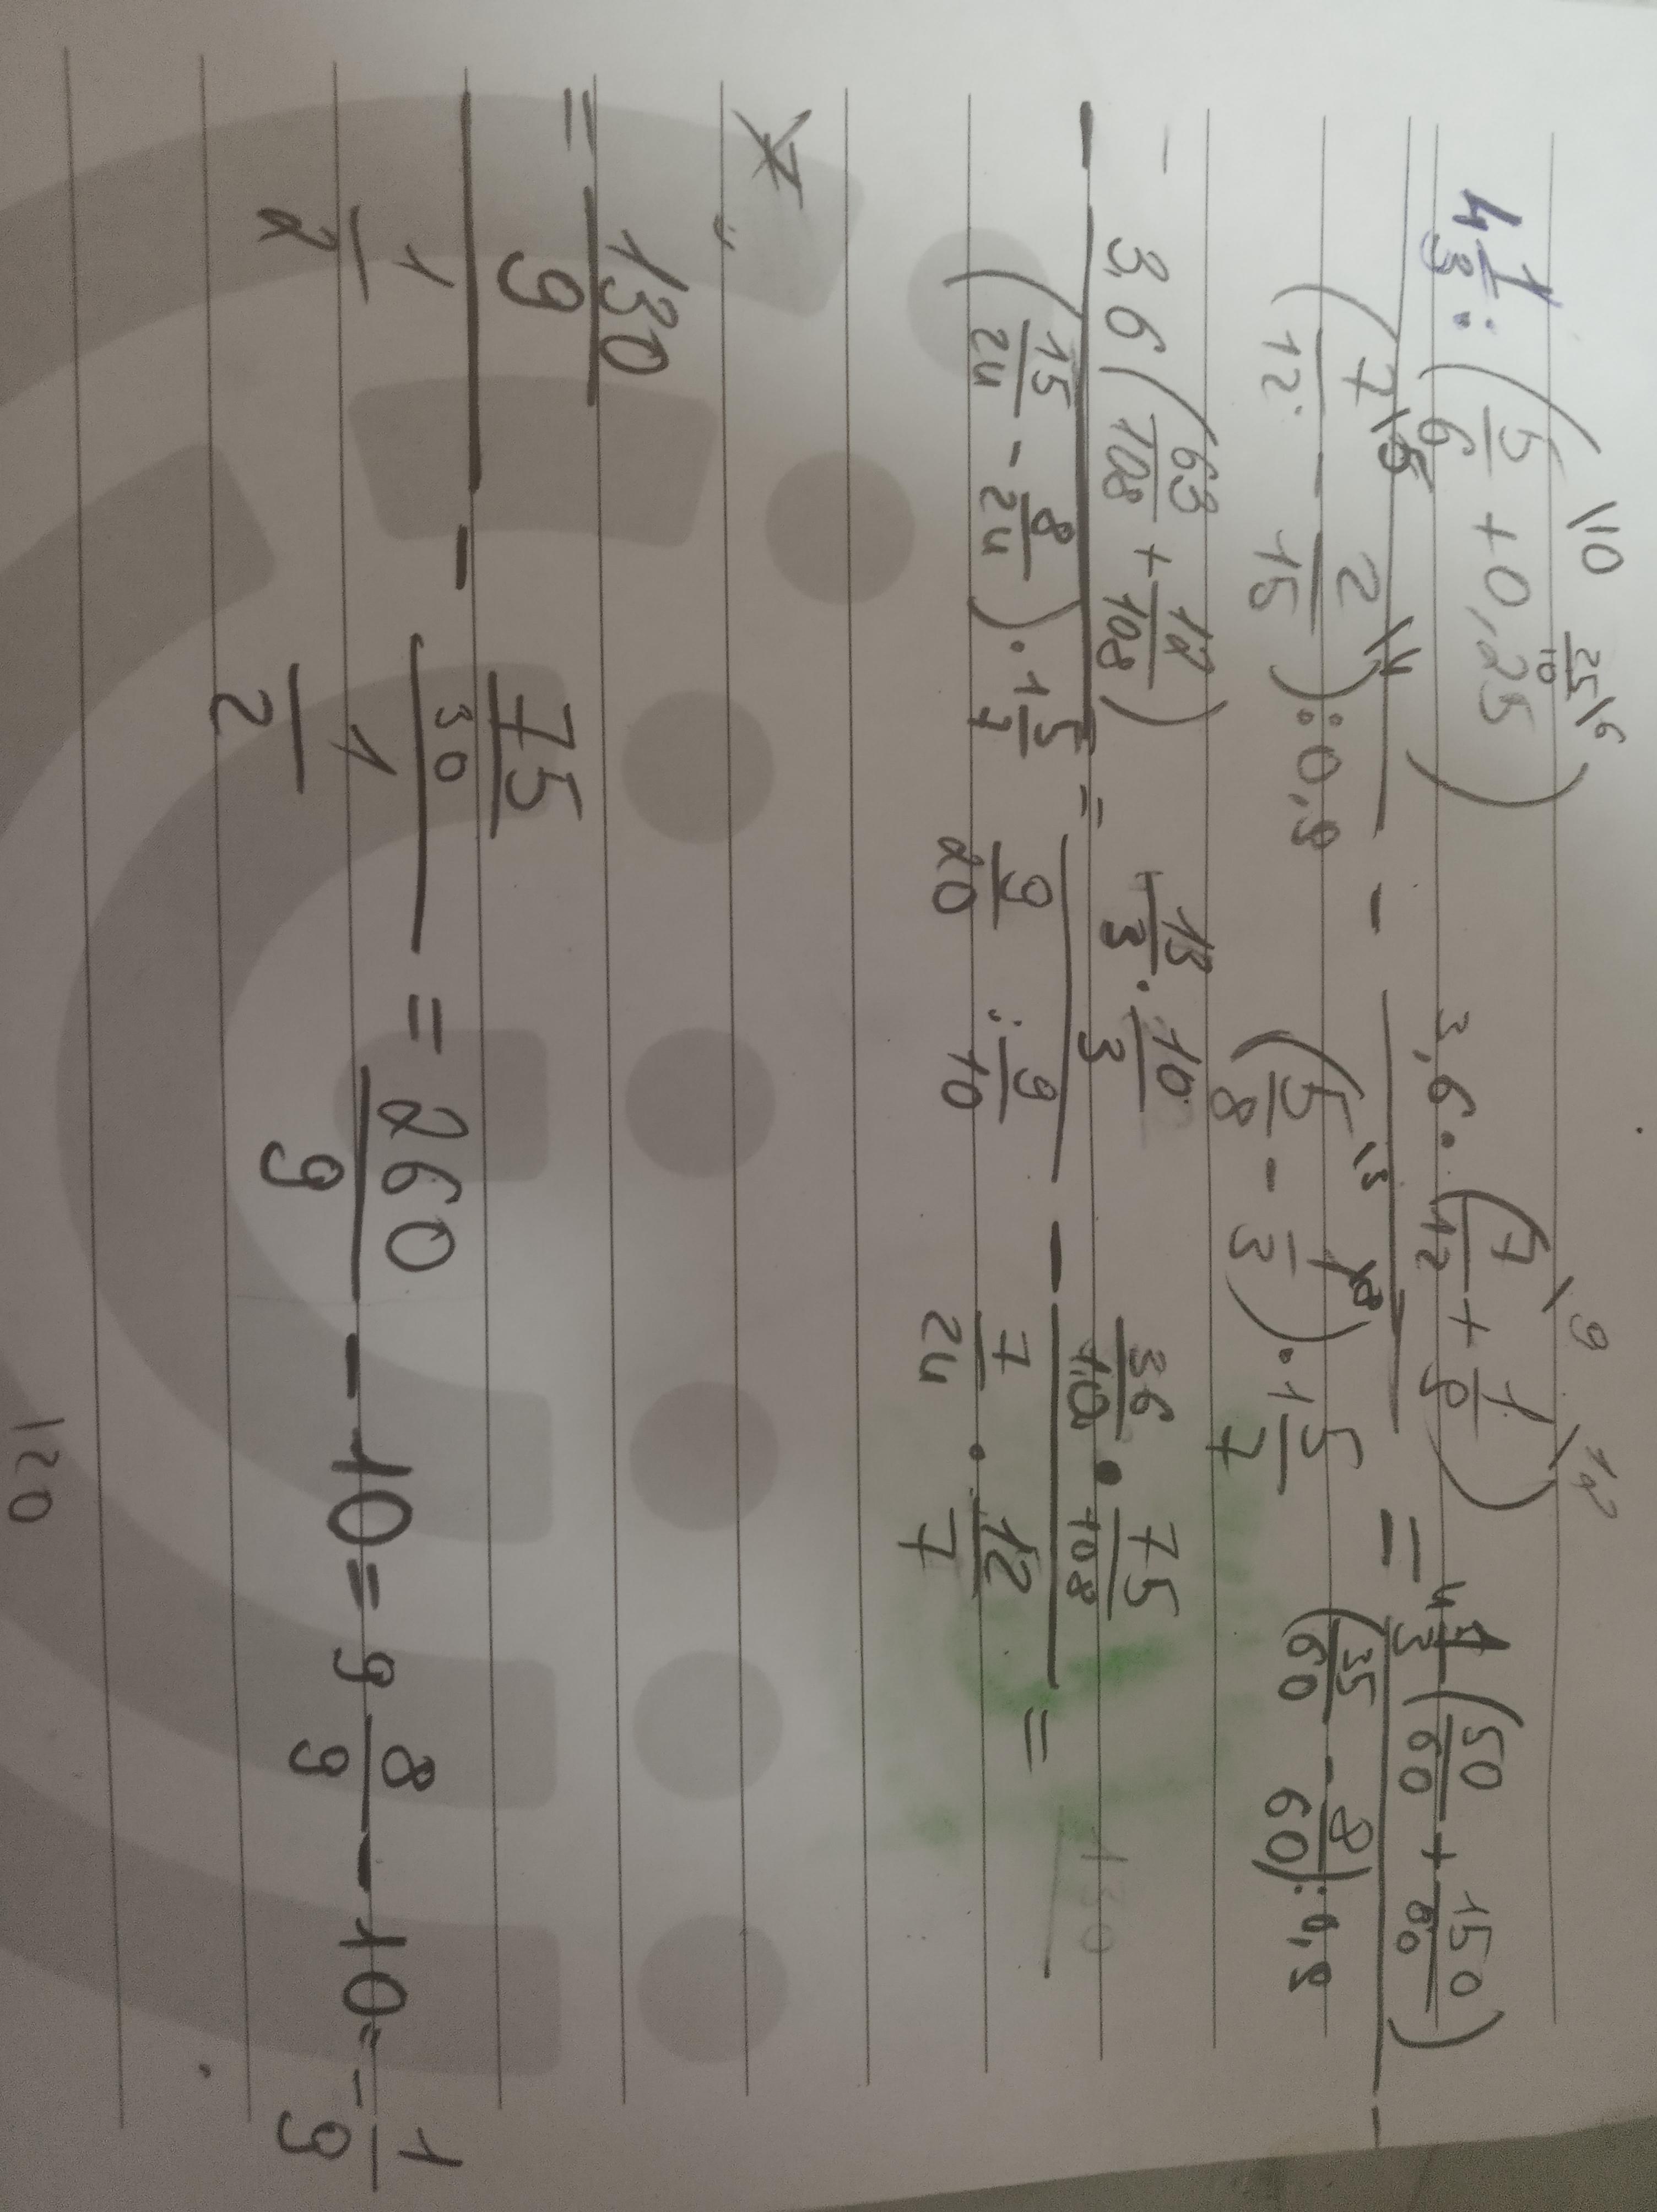 \10 25/10 \6 \9 \12
4 1/3 : ( 5/6 + 0,25 ) / ( 7/12 \5 - 2/15 \4 ) : 0,9 - 3,6 · ( 7/12 + 1/9 ) / ( 5/8 \3 - 1/3 \8 ) · 1 5/7 = 4 1/3 ( 50/60 + 150/60 ) / ( 35/60 - 8/60 ) : 0,9 -
- 3,6 ( 63/108 + 12/108 ) / ( 15/24 - 8/24 ) · 1 5/7 = 13/3 · 10/3 / 9/20 : 9/10 - 36/10 · 75/108 / 7/24 · 12/7 = 130
= 130/9 / 1/2 - 75/30 / 1/2 = 260/9 - 10 = 9 8/9 - 10 = - 1/9
120